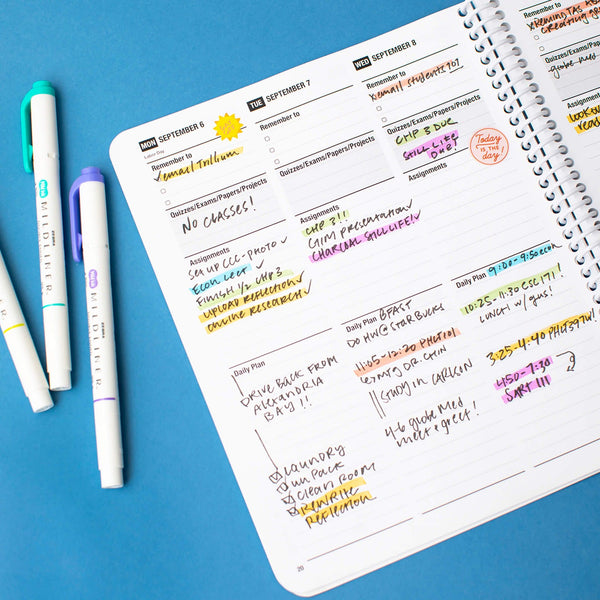 MON SEPTEMBER 6
Labor Day
Remember to
email Trillium
Quizzes/Exams/Papers/Projects
NO CLASSES!
Assignments
Set up CCC-PHOTO
ECON LECT
FINISH 1/2 CHP 3
UPLOAD REFLECTION
ONLINE RESEARCH
Daily Plan
DRIVE BACK FROM
ALEXANDRIA
BAY!!
LAUNDRY
UNPACK
CLEAN ROOM
REWRITE
REFLECTION
20
TUE SEPTEMBER 7
Remember to
Quizzes/Exams/Papers/Projects
Assignments
CHP 3!!
CHIM PRESENTATION
CHARCOAL STILL LIFE!
Daily Plan BFAST
DO HW @ STARBUCKS
11:05-12:20 PHOTO1
MTG DR. CHIN
STUDY IN CARLSON
4-6 globe Med
meet & greet!
WED SEPTEMBER 8
Remember to
email students 707
Quizzes/Exams/Papers/Projects
CHP 3 DUE
STILL LIFE
DUE!
Today
IS THE
day!
Assignments
Daily Plan 9:00-9:50 econ
10:25-11:30 ESC 171!
LUNCH w/ gus!
3:25-4:40 PHLT397W!
4:50-7:30
SART 111
Remember to
REMIND TAS
Creating
Quizzes/Exams/Papers
globe Med
Assignments
MILDLINER
ZEBRA
MILDLINER
ZEBRA